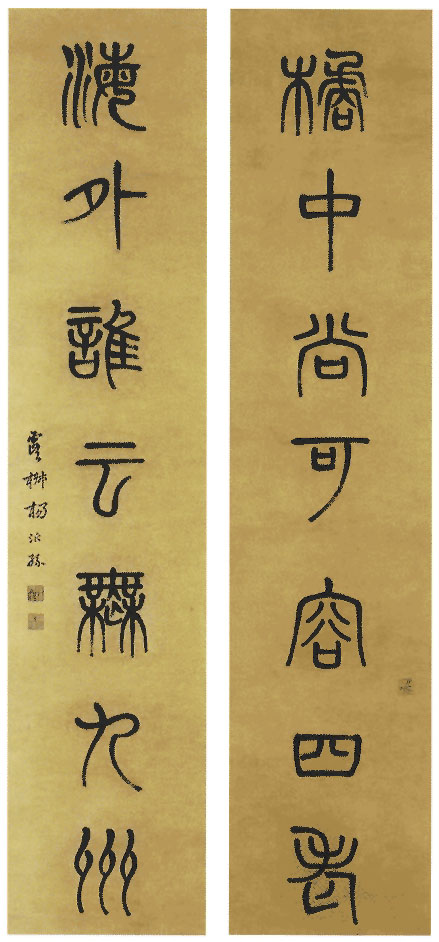 橘中尚可容四老
海外誰云無九州
虞 楊沂孫